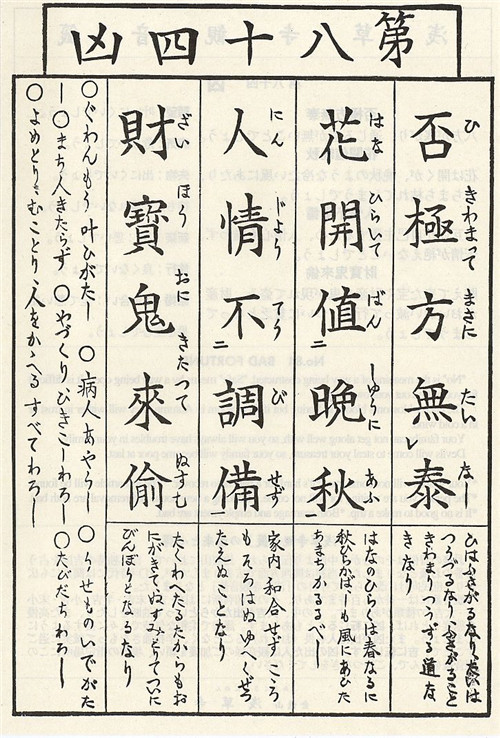 第八十四凶
否極方無泰
ひ きわまって まさに たい なし
レ
ひはふさがるなりたいは
つうづるなりふさがること
きわまりつうずる道な
きなり
花開値晩秋
はな ひらいて ばん しゅうに あふ
二 一
はなのひらくは春なるに
秋ひらけばしも風にあひた
ちまちかるるべし
人情不調備
にん じょう び せず
二 一
家内和合せずこころ
もそろはぬゆへくぜつ
たえぬとなり
財寶鬼來偷
ざい ほう おに きたって ぬすむ
たくわへたるたからもお
にがきたりぬすみてついに
びんぼうになるなり
○ぐわんもう叶ひがたし ○病人あやうし ○うせものいでがた
し ○まち人きたらず ○やづくりひきこしわろし ○たびだちわろし
○よめとりむことり人をかゝへるすべてわろし